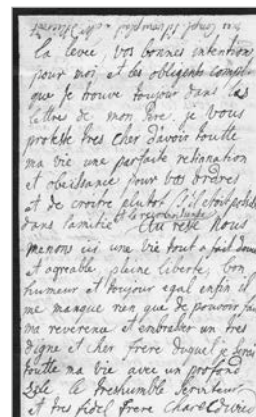 la levee, vos bonnes intentions
pour moi, et les obligents compli
que je trouve toujour dans les
lettre de mon Pere. je vous
proteste tres cher d'avoir toutte
ma vie une parfaite resination
et obeissance pour vos ordres
et de croitre plutot s'il etoit posible
dans l'amitie et la reconnoissance. Au reste Nous
menons ici une vie tout a fait douce
et agreable, pleine liberté, bon
humeur et toujour egal enfin il
me manque rien que de pouvoir fair
ma reverence et embrasser un tres
digne et cher frere duquel je serai
toutte ma vie avec un profond
Zele le tres humble serviteur
et tres fidel frere